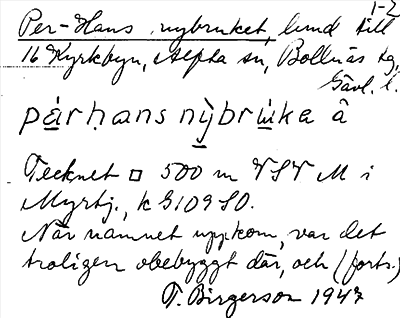 1-2
Per-Hans nybruket, lund till
16 Kyrkbyn, Alfta sn, Bollnäs tg,
Gävl. l.
pȧrḥans nẏbru̇ka â
Tecknet □ 500 m VSV M i
Myrtj., k G109 SO.
När namnet uppkom, var det
troligen obebyggt där, och (forts.)
T. Birgerson 1947